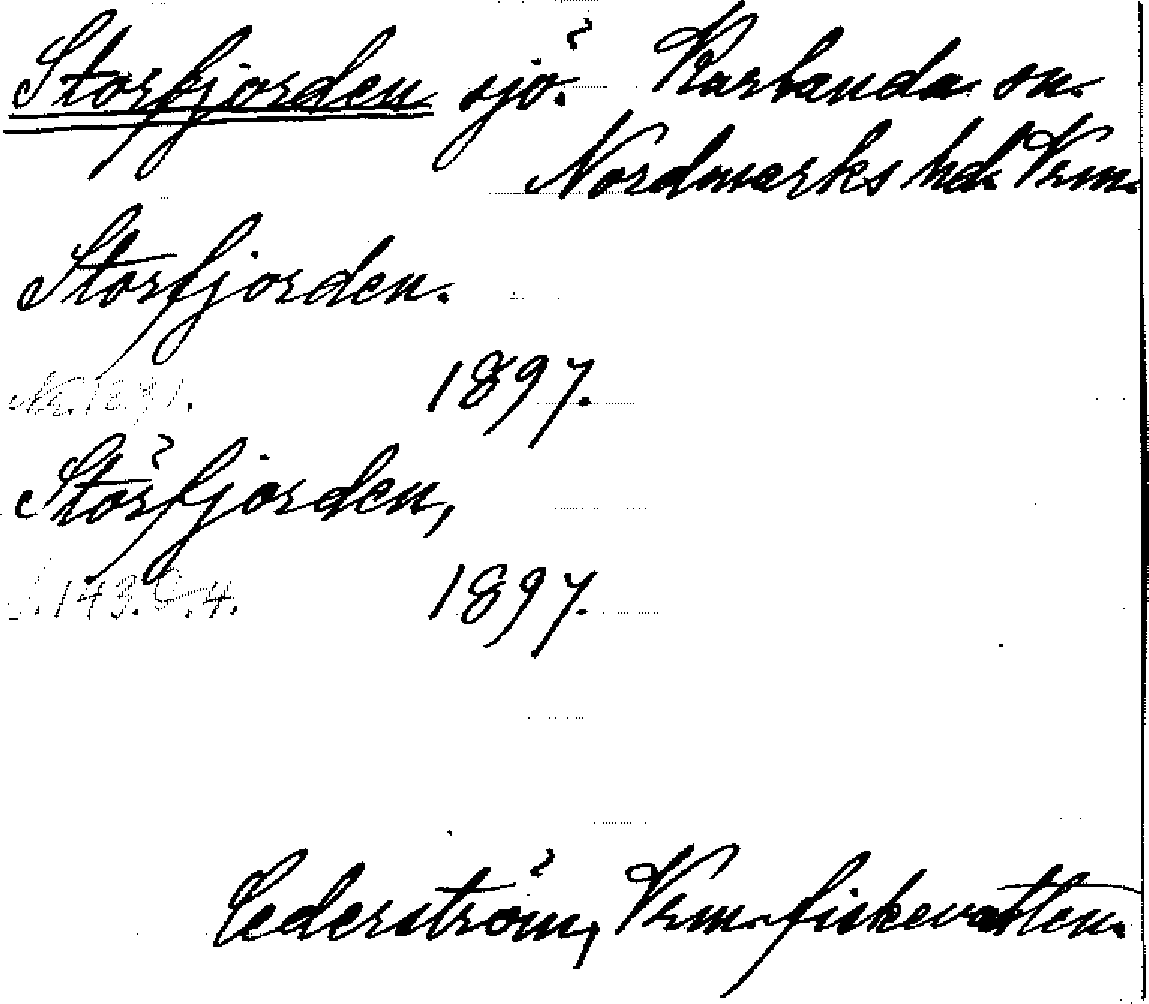 Storfjorden sjö. Karlanda sn.
Nordmarks hd. Vrm.
Storfjorden.
1897.
Störfjorden,
S. 143. 4.
1897.
Cederström, Vrm. fiskevatten.